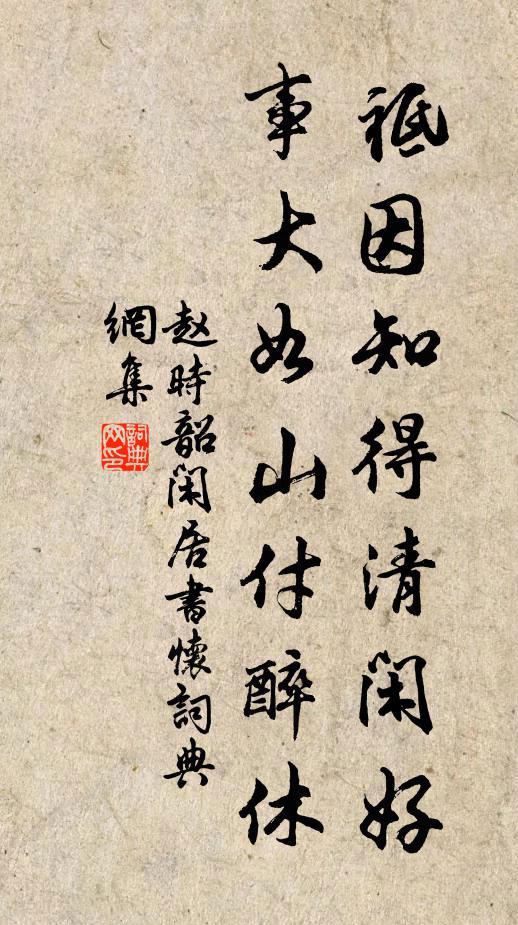 祗因知得清閑好
事大如山付醉休
赵時韶閑居書懷詞典
網集
詞典
网印